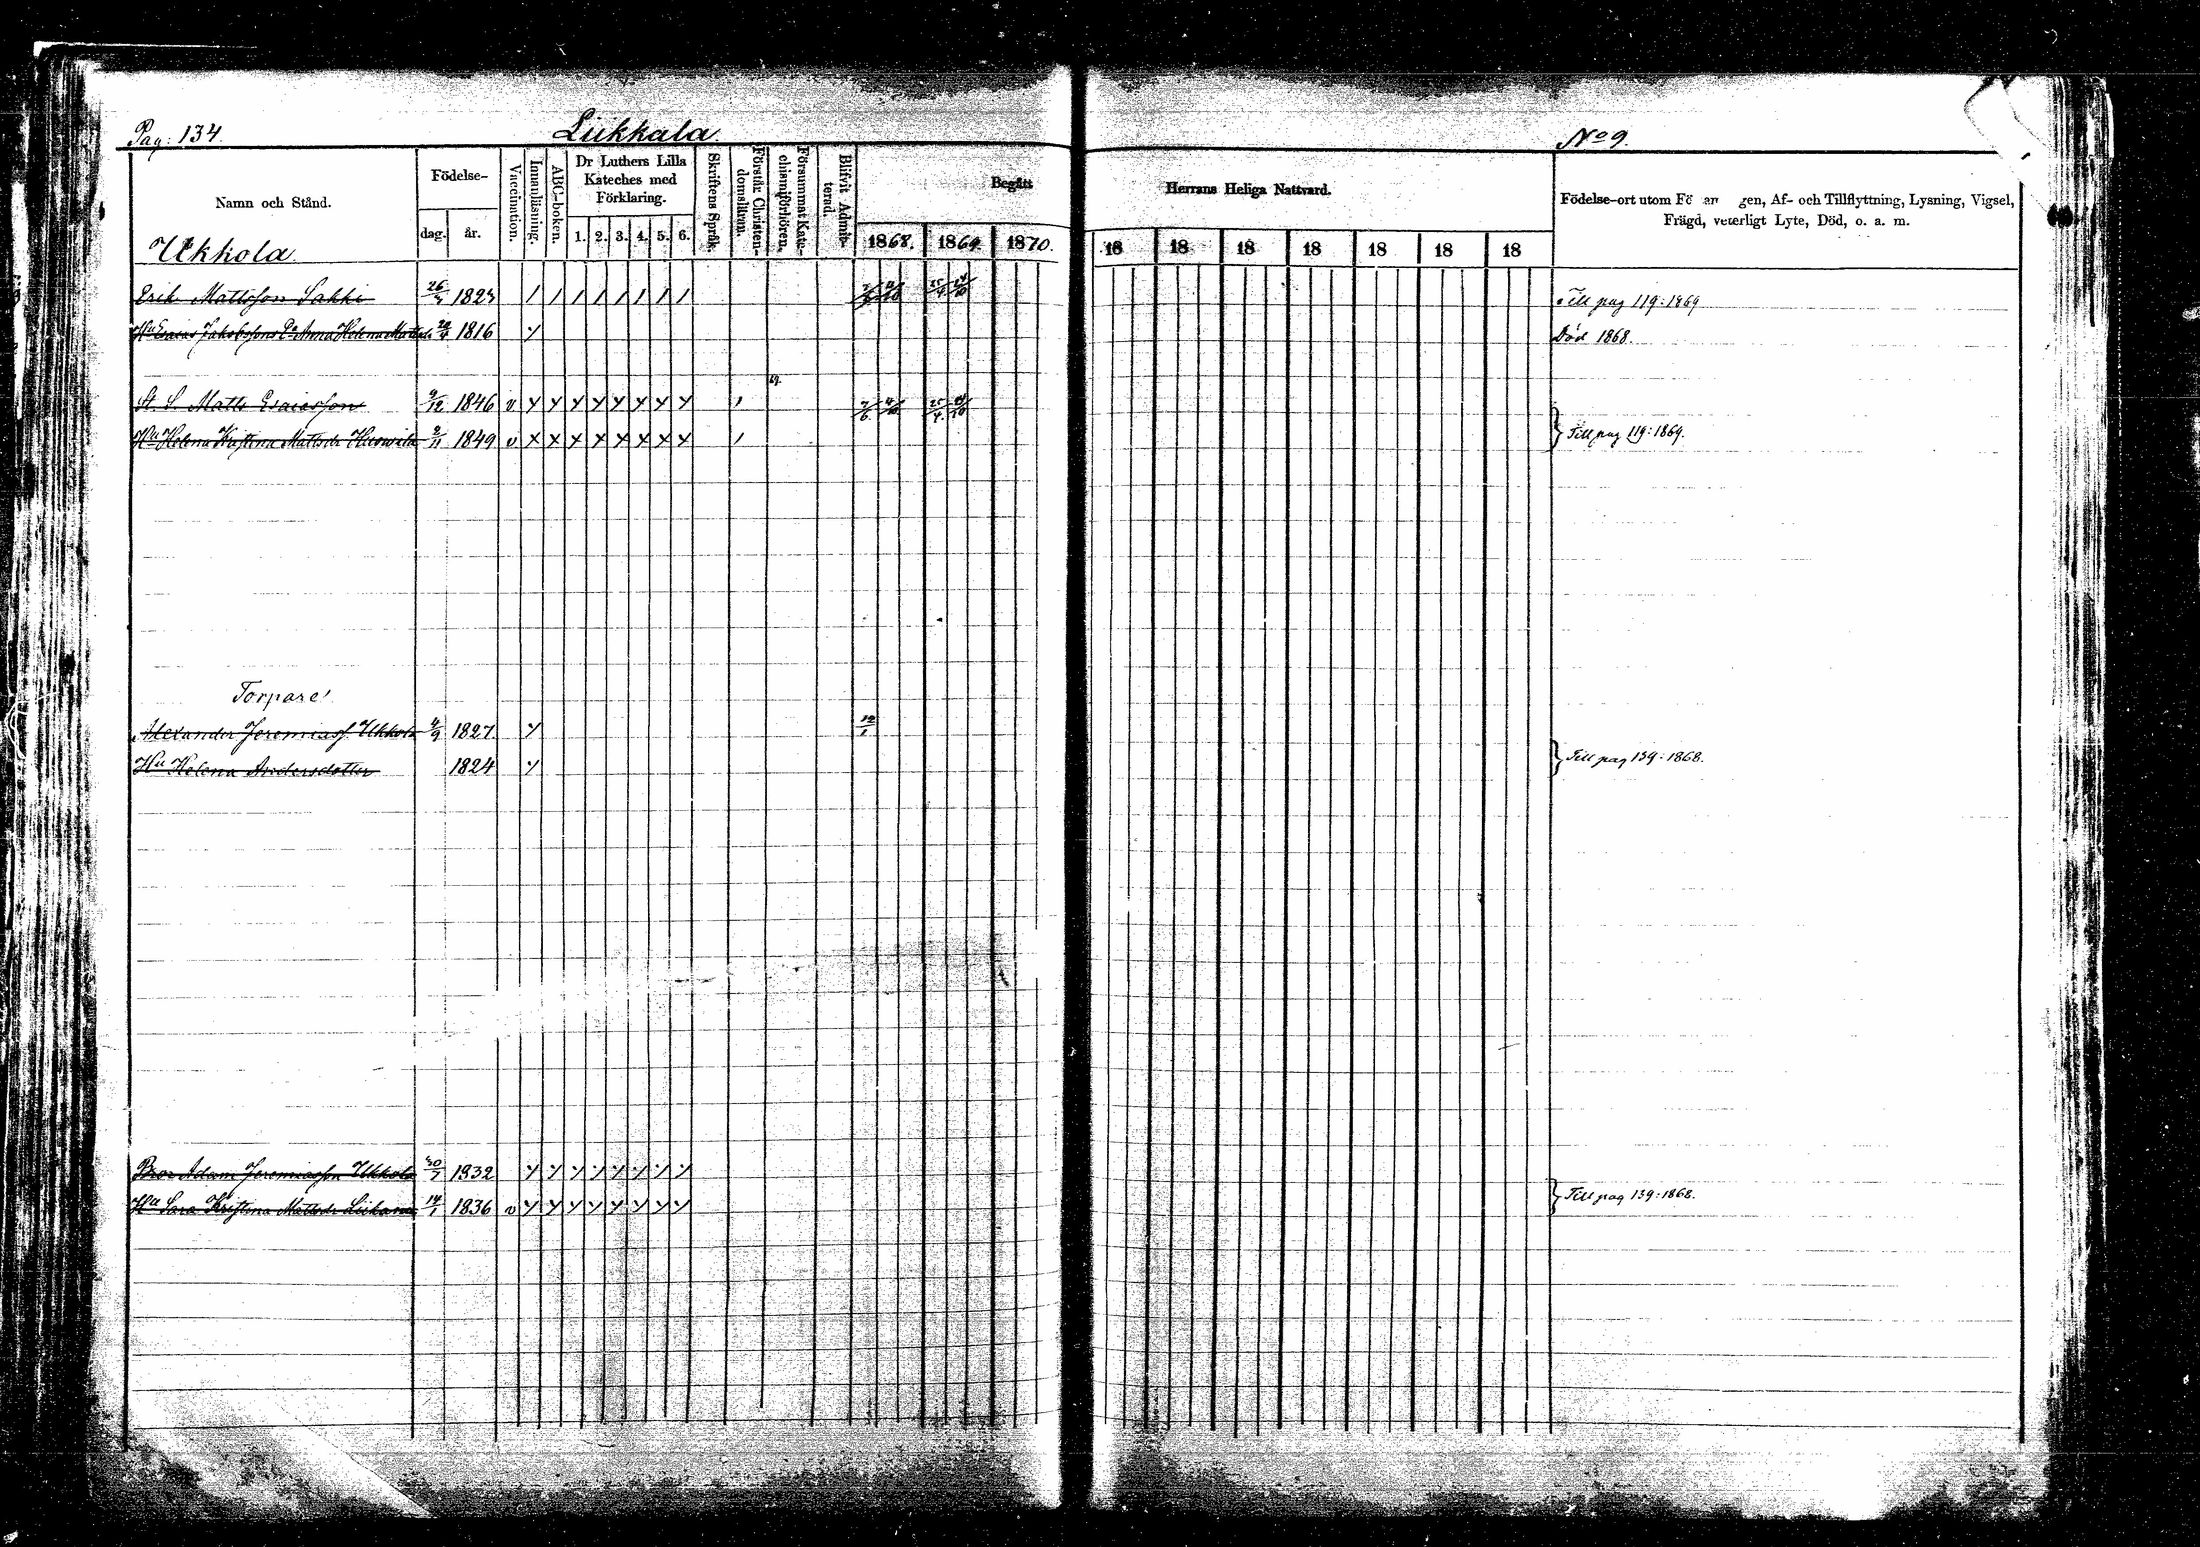 Pag: 134. Liikkala. No 9.
Namn och Stånd. Födelse- dag. år. Vaccination. Innanläsning. ABC-boken. Dr Luthers Lilla Kateches med Förklaring. 1. 2. 3. 4. 5. 6. Skriftens Språk. Förstår Christendomsläran. Försummat Katechismiförhören. Blifvit Admitterad. Begått Herrans Heliga Nattvard. Födelse-ort utom Fö gen, Af- och Tillflyttning, Lysning, Vigsel,
Frägd, veterligt Lyte, Död, o. a. m.
1868. 1869 1870. 18 18 18 18 18 18 18
Ukkola
Erik Mattsson Sakki 1823 / / / / / / / / Till pag 119: 1869
Hu Esaias Jakobssons Anna Helena 1816 Död 1868.
69.
St. S. Matts Esaiasson 9/12 1846 v 7/6 25/4
Hu Helena Kristina Mattsdr 1849 v } Till pag 119: 1869.
Torpare
Alexander Jeremiass Ukkola 4/9 1827 12/1
Hu Helena Andersdotter 1824 } Till pag 139: 1868.
Bror Adam Jeremiasson Ukkola 30/7 1832
Hu Sara Kristina Mattsdr 14/1 1836 v } Till pag 139: 1868.